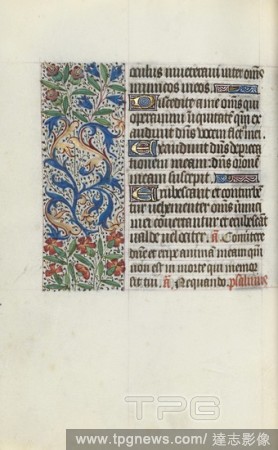 oculus inveteravi inter oms
inimicos meos.
Discedite a me oms qui
operamini iniquitate qm ex
audivit dns vocem fletus mei.
Exaudivit dns depreca
tionem meam: dns orone
meam suscepit.
Erubescant et conturbe
tur vehementer oms inimi
ci mei convertant et erubescant
valde velociter. a. Convertere
dne et eripe animam mea qm
non est in morte qui memor
sit tui. a. Nequando. psalmus
TPG
www.tpgnews.com / 達志影像